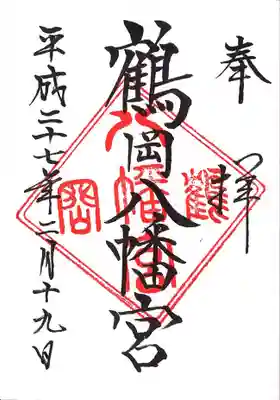 奉拝
鶴岡八幡宮
鶴岡
八幡宮
平成二十七年二月十九日